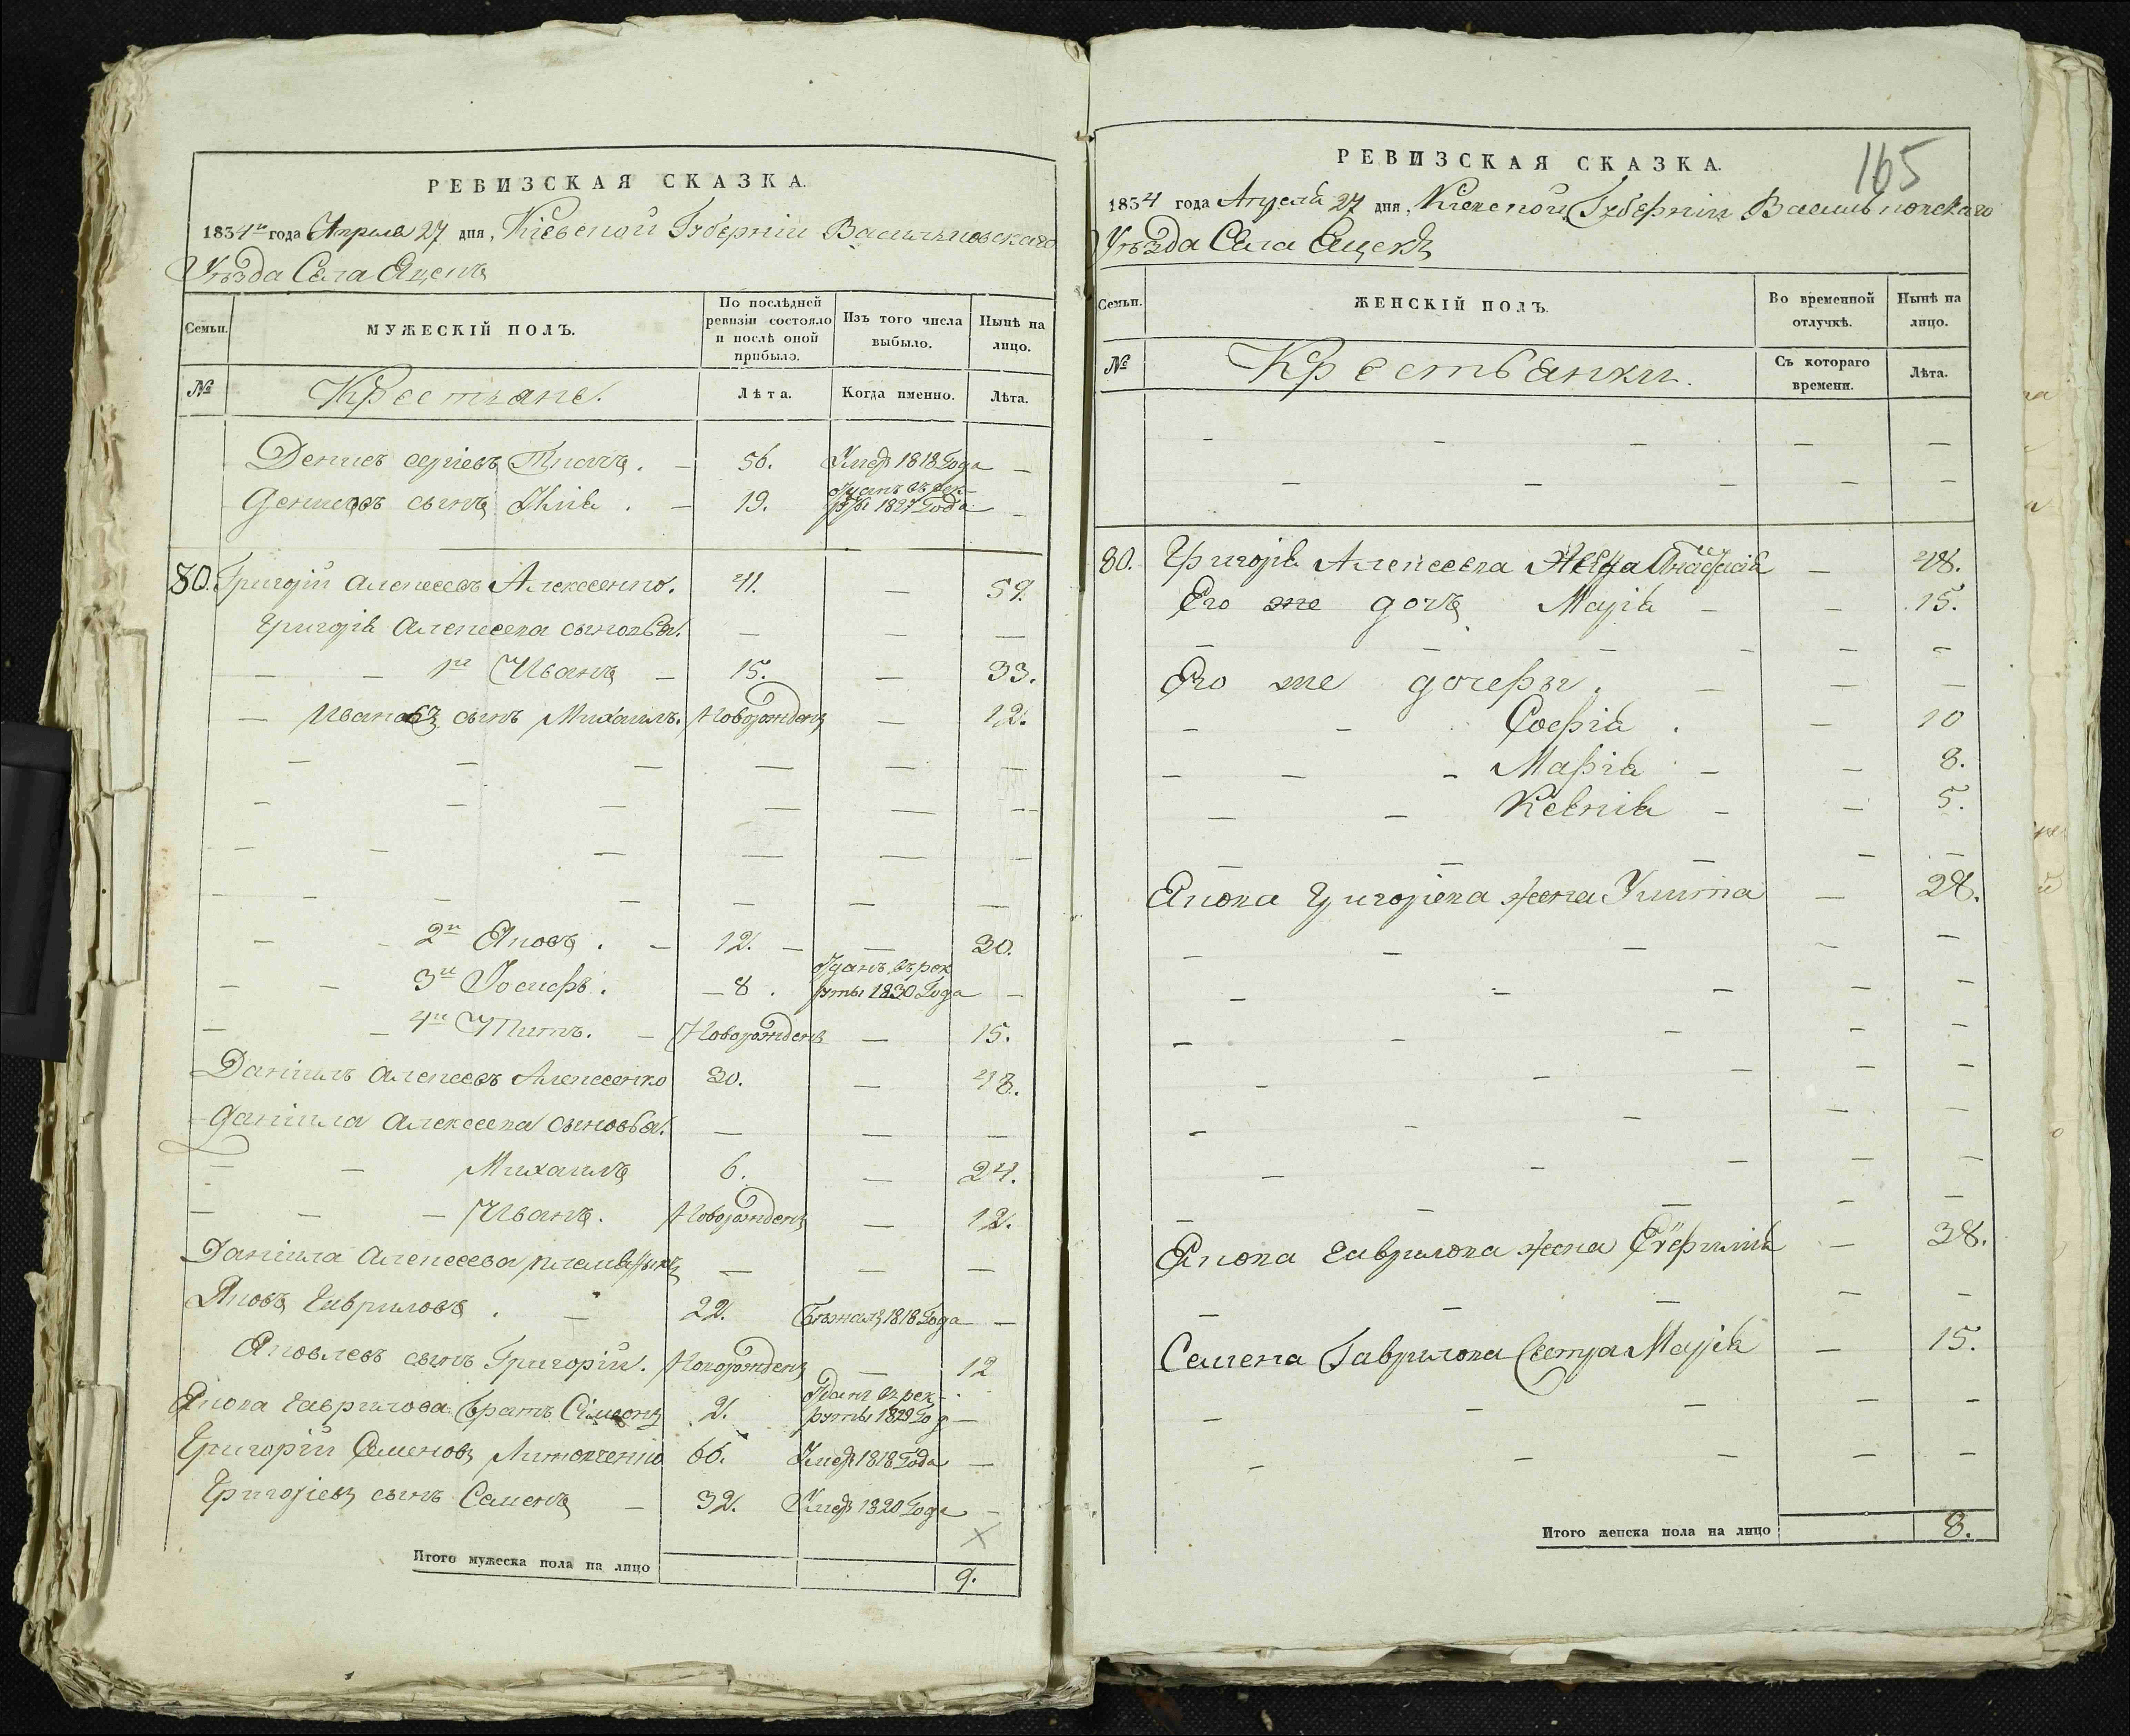 РЕВИЗСКАЯ СКАЗКА.
1834го года Апреля 27 дня, Кіевской Губерніи Васильковскаго
Уѣзда Села Яцекъ
Семьи.
МУЖЕСКІЙ ПОЛЪ.
По послѣдней ревизіи состояло и послѣ оной прибыло.
Изъ того числа выбыло.
Нынѣ на лицо.
№
Крестьяне.
Лѣта.
Когда именно.
Лѣта.
Денисъ Сергіевъ . — 56. Умер 1818 Года —
Денисовъ сынъ Илія . — 19. Отданъ въ рек-
руты 1827 Года —
80. Григорій Алексеевъ Алексеенко. 41. — 59.
Григорія Алексеева сыновья. — — —
— — 1й Иванъ — 15. — 33.
— Ивановъ сынъ Михаилъ. Новорожденъ — 12.
— — — — — —
— — — — — —
— — — — — —
— — — — — —
— - 2й Яковъ . — 12. — — 30.
— — 3й Іосифъ . — 8 . Отданъ въ рек
руты 1830 Года —
— — 4й Титъ. — Новорожденъ — 15.
Даніилъ Алексеевъ Алексеенко 30. — 48.
Даніила Алексеева сыновья. — — —
— — Михаилъ 6. — 24.
— — — Иванъ. Новорожденъ — 12.
Даніила Алексеева племянникъ — — —
Яковъ Гавриловъ . — 22. Бежалъ 1818 Года —
Яковлевъ сынъ Григорій. Новорожденъ — 12
Якова Гаврилова братъ Сімеонъ 2. Отданъ в рек-
руты 1829 Год —
Григорій Семеновъ 66. Умер 1818 Года —
Григоріевъ сынъ Семенъ — 32. Умер 1820 Года —
Итого мужеска пола на лицо 9.
165
РЕВИЗСКАЯ СКАЗКА.
1834 года Апреля 27 дня, Кіевской Губерніи Васильковскаго
Уѣзда Села Яцекъ
Семьи.
ЖЕНСКІЙ ПОЛЪ.
Во временной отлучкѣ.
Нынѣ на лицо.
№
Крестьянки.
Съ котораго времени.
Лѣта.
- - - — —
— — — — —
80. Григорія Алексеева Анастасія — 48.
Его же дочь Марія — — 15.
— — — — — -
Его же дочеры . — — —
— - Софія . — 10
— — - Марія — — 8.
— — Ксенія — — 5.
— — — — —
Якова Григорьева жена Улита — 28.
— — — — —
— — — — —
— — — — —
— — — — —
— — — — —
— — — — —
— — — — —
Якова Гаврилова жена Евфимія — 38.
— — — — —
Семена Гаврилова сестра Марія — 15.
— — — — —
— — — — —
Итого женска пола на лицо 8.